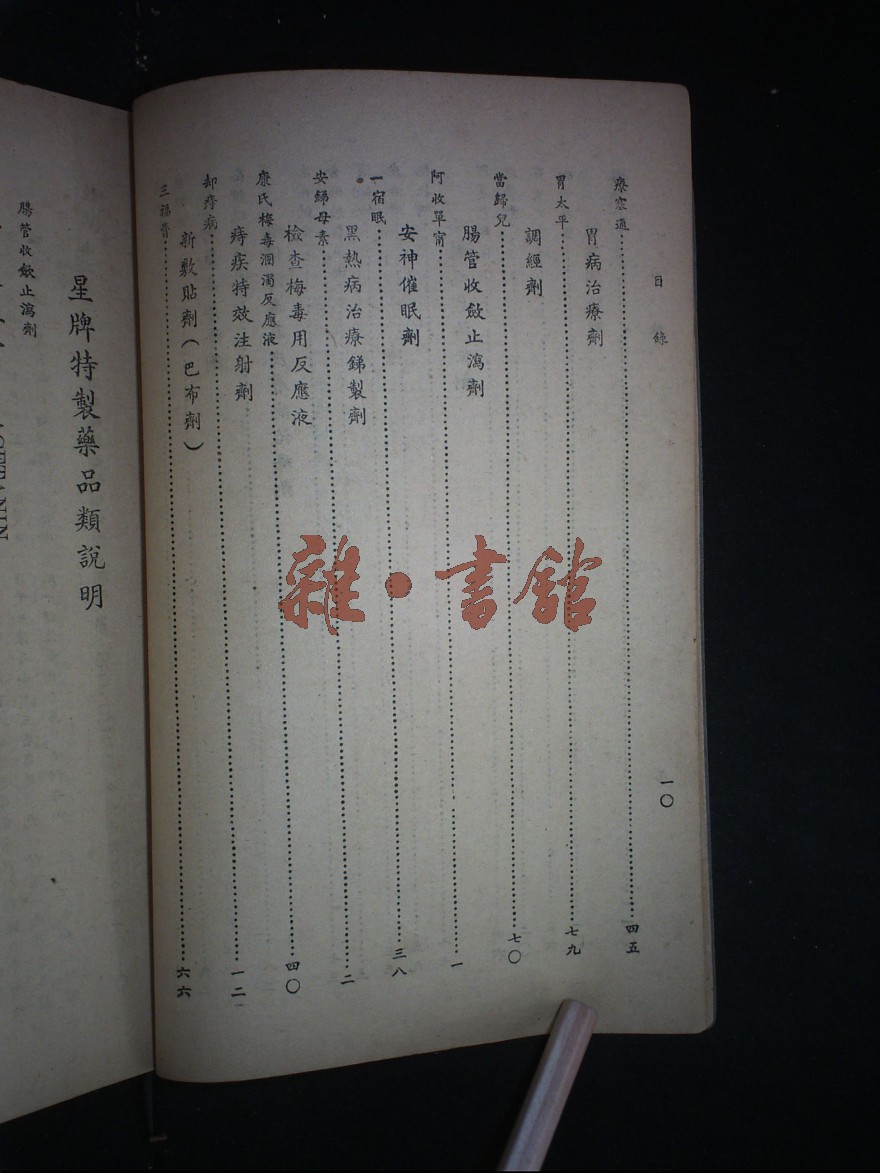 目錄
一〇
療窓適……四五
胃病治療劑
胃太平……七九
調經劑
當歸兒……七〇
腸管收斂止瀉劑
阿收單甯……一
安神催眠劑
一宿眠……三八
黑熱病治療銻製劑
安銻母素……二
檢查梅毒用反應液
康氏梅毒涸濁反應液……四〇
痔疾特效注射劑
卸痔病……一二
新敷貼劑(巴布劑)
三福膏……六六
星牌特製藥品類說明
腸管收斂止瀉劑
雜·書館